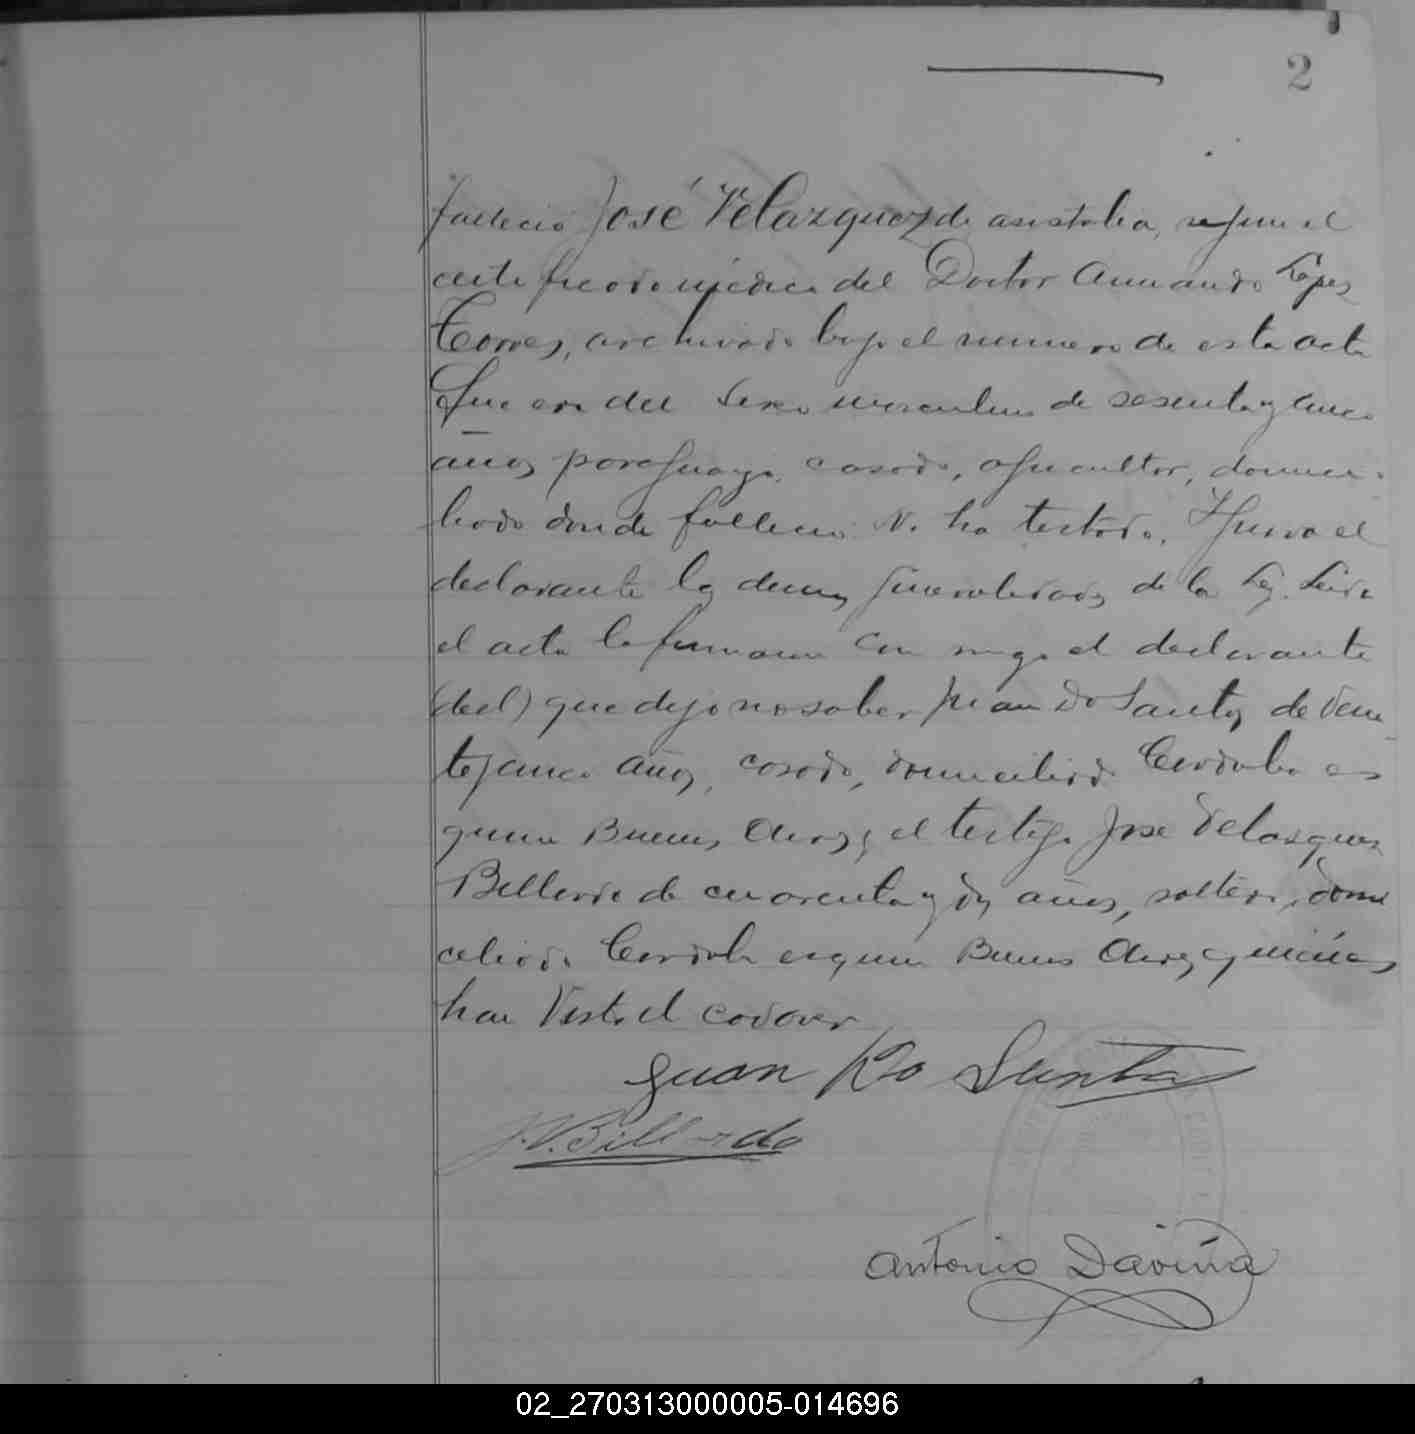 2
falleció José Velazquez de asistolia, según el
certificado médico del Doctor Armando López
Torres, archivado bajo el numero de esta acta
Que era del sexo masculino de sesenta y cinco
años paraguayo, casado, agricultor, domici-
liado donde falleció. No ha testado. Ignora el
declarante las demas generalidades de la Ley. Leida
el acta la firmaron con migo el declarante
(decl) que dijo no saber Juan Do Santos de vein
te y cinco años, casado, domiciliado Cordoba es
quina Buenos Aires y el testigo José Velasquez
Billordo de cuarenta y dos años, soltero, domi
ciliado Cordoba esquina Buenos Aires quienes
han visto el cadaver
Juan Do Santo
J. V. Billordo
Antonio Daviña
02_270313000005-014696